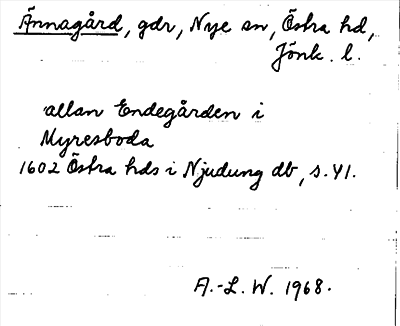 Ännagård, gdr, Nye sn, Östra hd,
Jönk. l.
allan Endegården i
Myresboda
1602 Östra hds i Njudung db, s. 41.
A.-L. W. 1968.